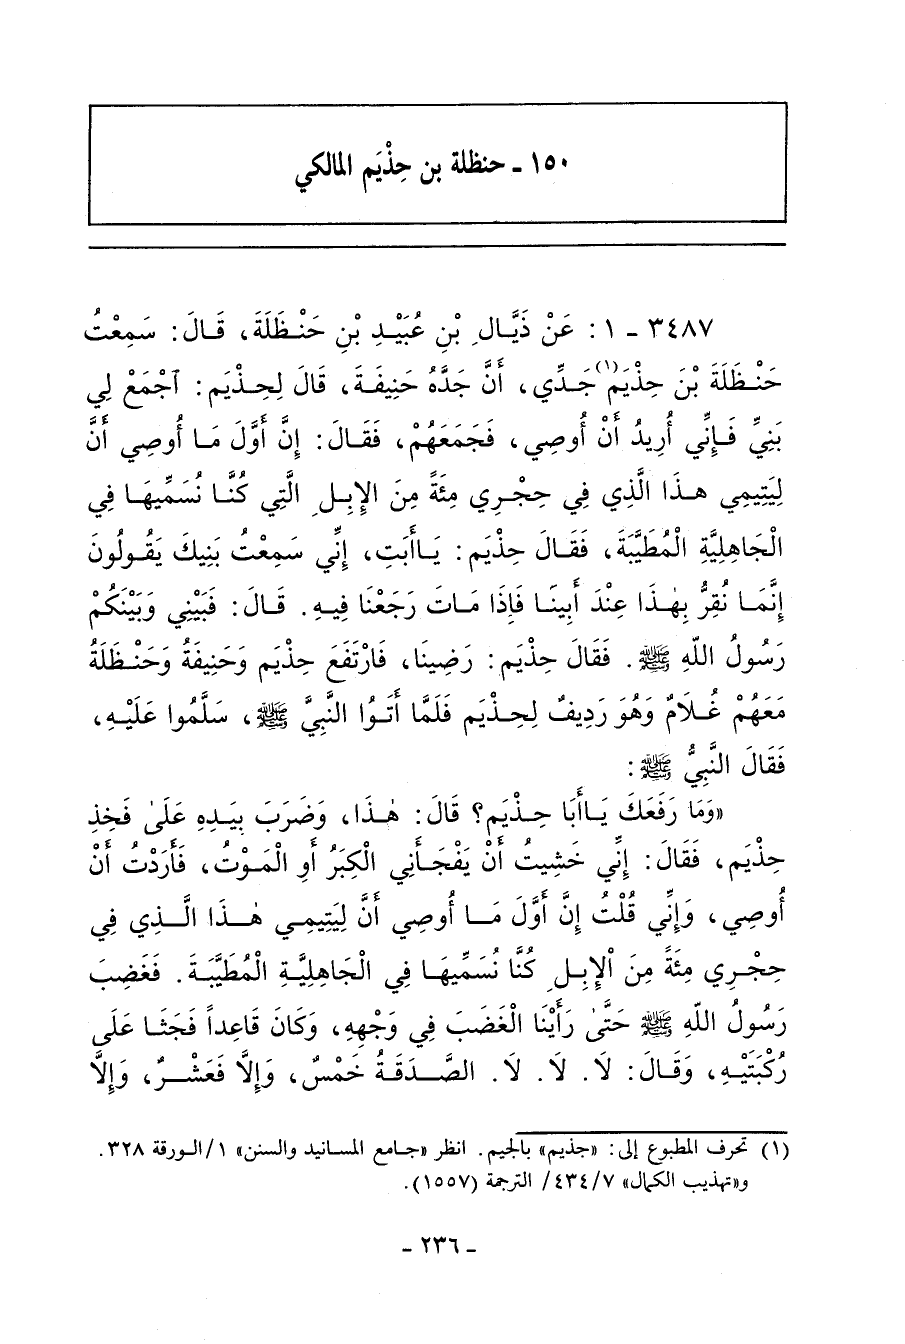 ١٥٠ ـ حنظلة بن حِذْيَم المالكي
٣٤٨٧ ـ ١ : عَنْ ذَيَّالِ بْنِ عُبَيْدِ بْنِ حَنْظَلَةَ، قَالَ: سَمِعْتُ
حَنْظَلَةَ بْنَ حِذْيَمٍ(١) جَدِّي، أَنَّ جَدَّهُ حَنِيفَةَ، قَالَ لِحِذْيَمٍ: آجْمَعْ لِي
بَنِيَّ فَإِنِّي أُرِيدُ أَنْ أُوصِي، فَجَمَعَهُمْ، فَقَالَ: إِنَّ أَوَّلَ مَا أُوصِي أَنَّ
لِيَتِيمِي هذَا الَّذِي فِي حِجْرِي مِئَةً مِنَ الإِبِلِ الَّتِي كُنَّا نُسَمِّيهَا فِي
الْجَاهِلِيَّةِ الْمُطَيَّبَةَ، فَقَالَ حِذْيَم: يَاأَبَتِ، إِنِّي سَمِعْتُ بَنِيكَ يَقُولُونَ
إِنَّمَا نُقِرُّ بِهٰذَا عِنْدَ أَبِينَا فَإِذَا مَاتَ رَجَعْنَا فِيهِ. قَالَ: فَبَيْنِي وَبَيْنَكُمْ
رَسُولُ اللّهِ ﷺ. فَقَالَ حِذْيَم: رَضِينَا، فَارْتَفَعَ حِذْيَم وَحَنِيفَةُ وَحَنْظَلَةُ
مَعَهُمْ غُلَامٌ وَهُوَ رَدِيفٌ لِحِذْيَم فَلَمَّا أَتَوُا النَّبِيَّ ﷺ، سَلَّمُوا عَلَيْهِ،
فَقَالَ النَّبِيُّ ﷺ:
«وَمَا رَفَعَكَ يَاأَبَا حِذْيَم؟ قَالَ: هٰذَا، وَضَرَبَ بِيَدِهِ عَلَىٰ فَخِذِ
حِذْيَم، فَقَالَ: إِنِّي خَشِيتُ أَنْ يَفْجَأَنِي الْكِبَرُ أَوِ الْمَوْتُ، فَأَرَدْتُ أَنْ
أُوصِي، وَإِنِّي قُلْتُ إِنَّ أَوَّلَ مَا أُوصِي أَنَّ لِيَتِيمِي هٰذَا الَّذِي فِي
حِجْرِي مِئَةً مِنَ الْإِبِلِ كُنَّا نُسَمِّيهَا فِي الْجَاهِلِيَّةِ الْمُطَيَّبَةَ. فَغَضِبَ
رَسُولُ اللّهِ ﷺ حَتَّىٰ رَأَيْنَا الْغَضَبَ فِي وَجْهِهِ، وَكَانَ قَاعِداً فَجَثَا عَلَى
رُكْبَتَيْهِ، وَقَالَ: لَا. لَا. لَا. الصَّدَقَةُ خَمْسٌ، وَإِلَّا فَعَشْرٌ، وَإِلَّا
(١) تحرف المطبوع إلى: «جذيم» بالجيم. انظر «جامع المسانيد والسنن» ١/الورقة ٣٢٨.
و«تهذيب الكمال» ٤٣٤/٧/ الترجمة (١٥٥٧).
ـ ٢٣٦ ـ